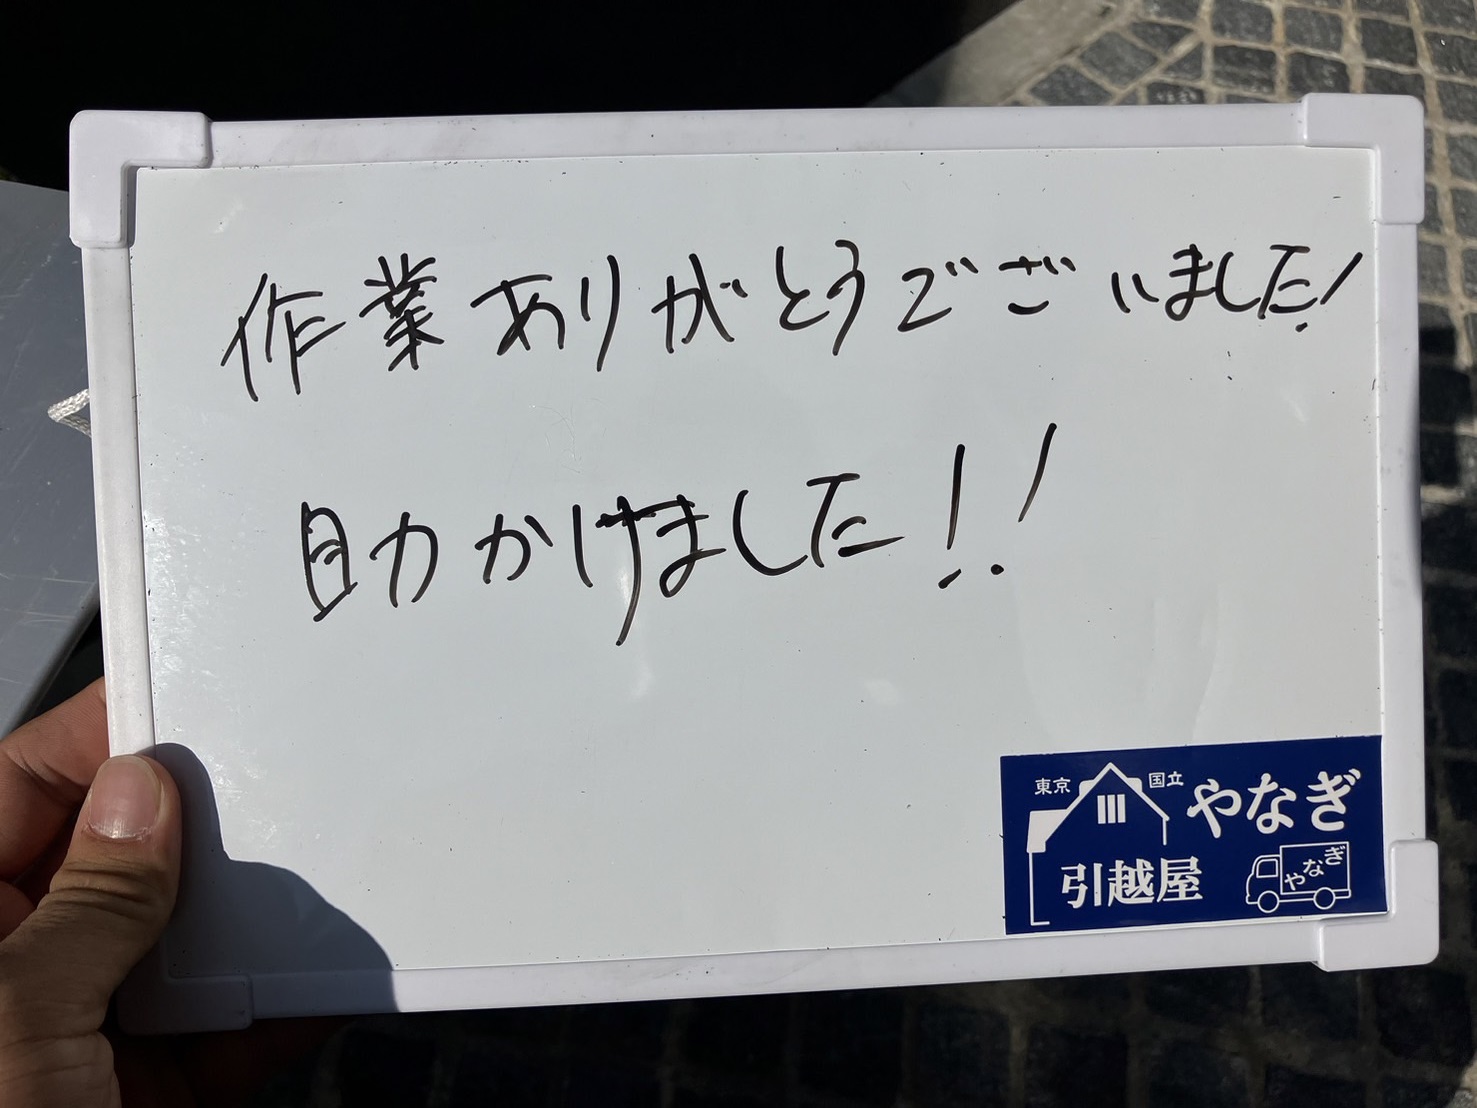 作業ありがとうございました!
助かけました!!
東京 国立 やなぎ
引越屋 やなぎ